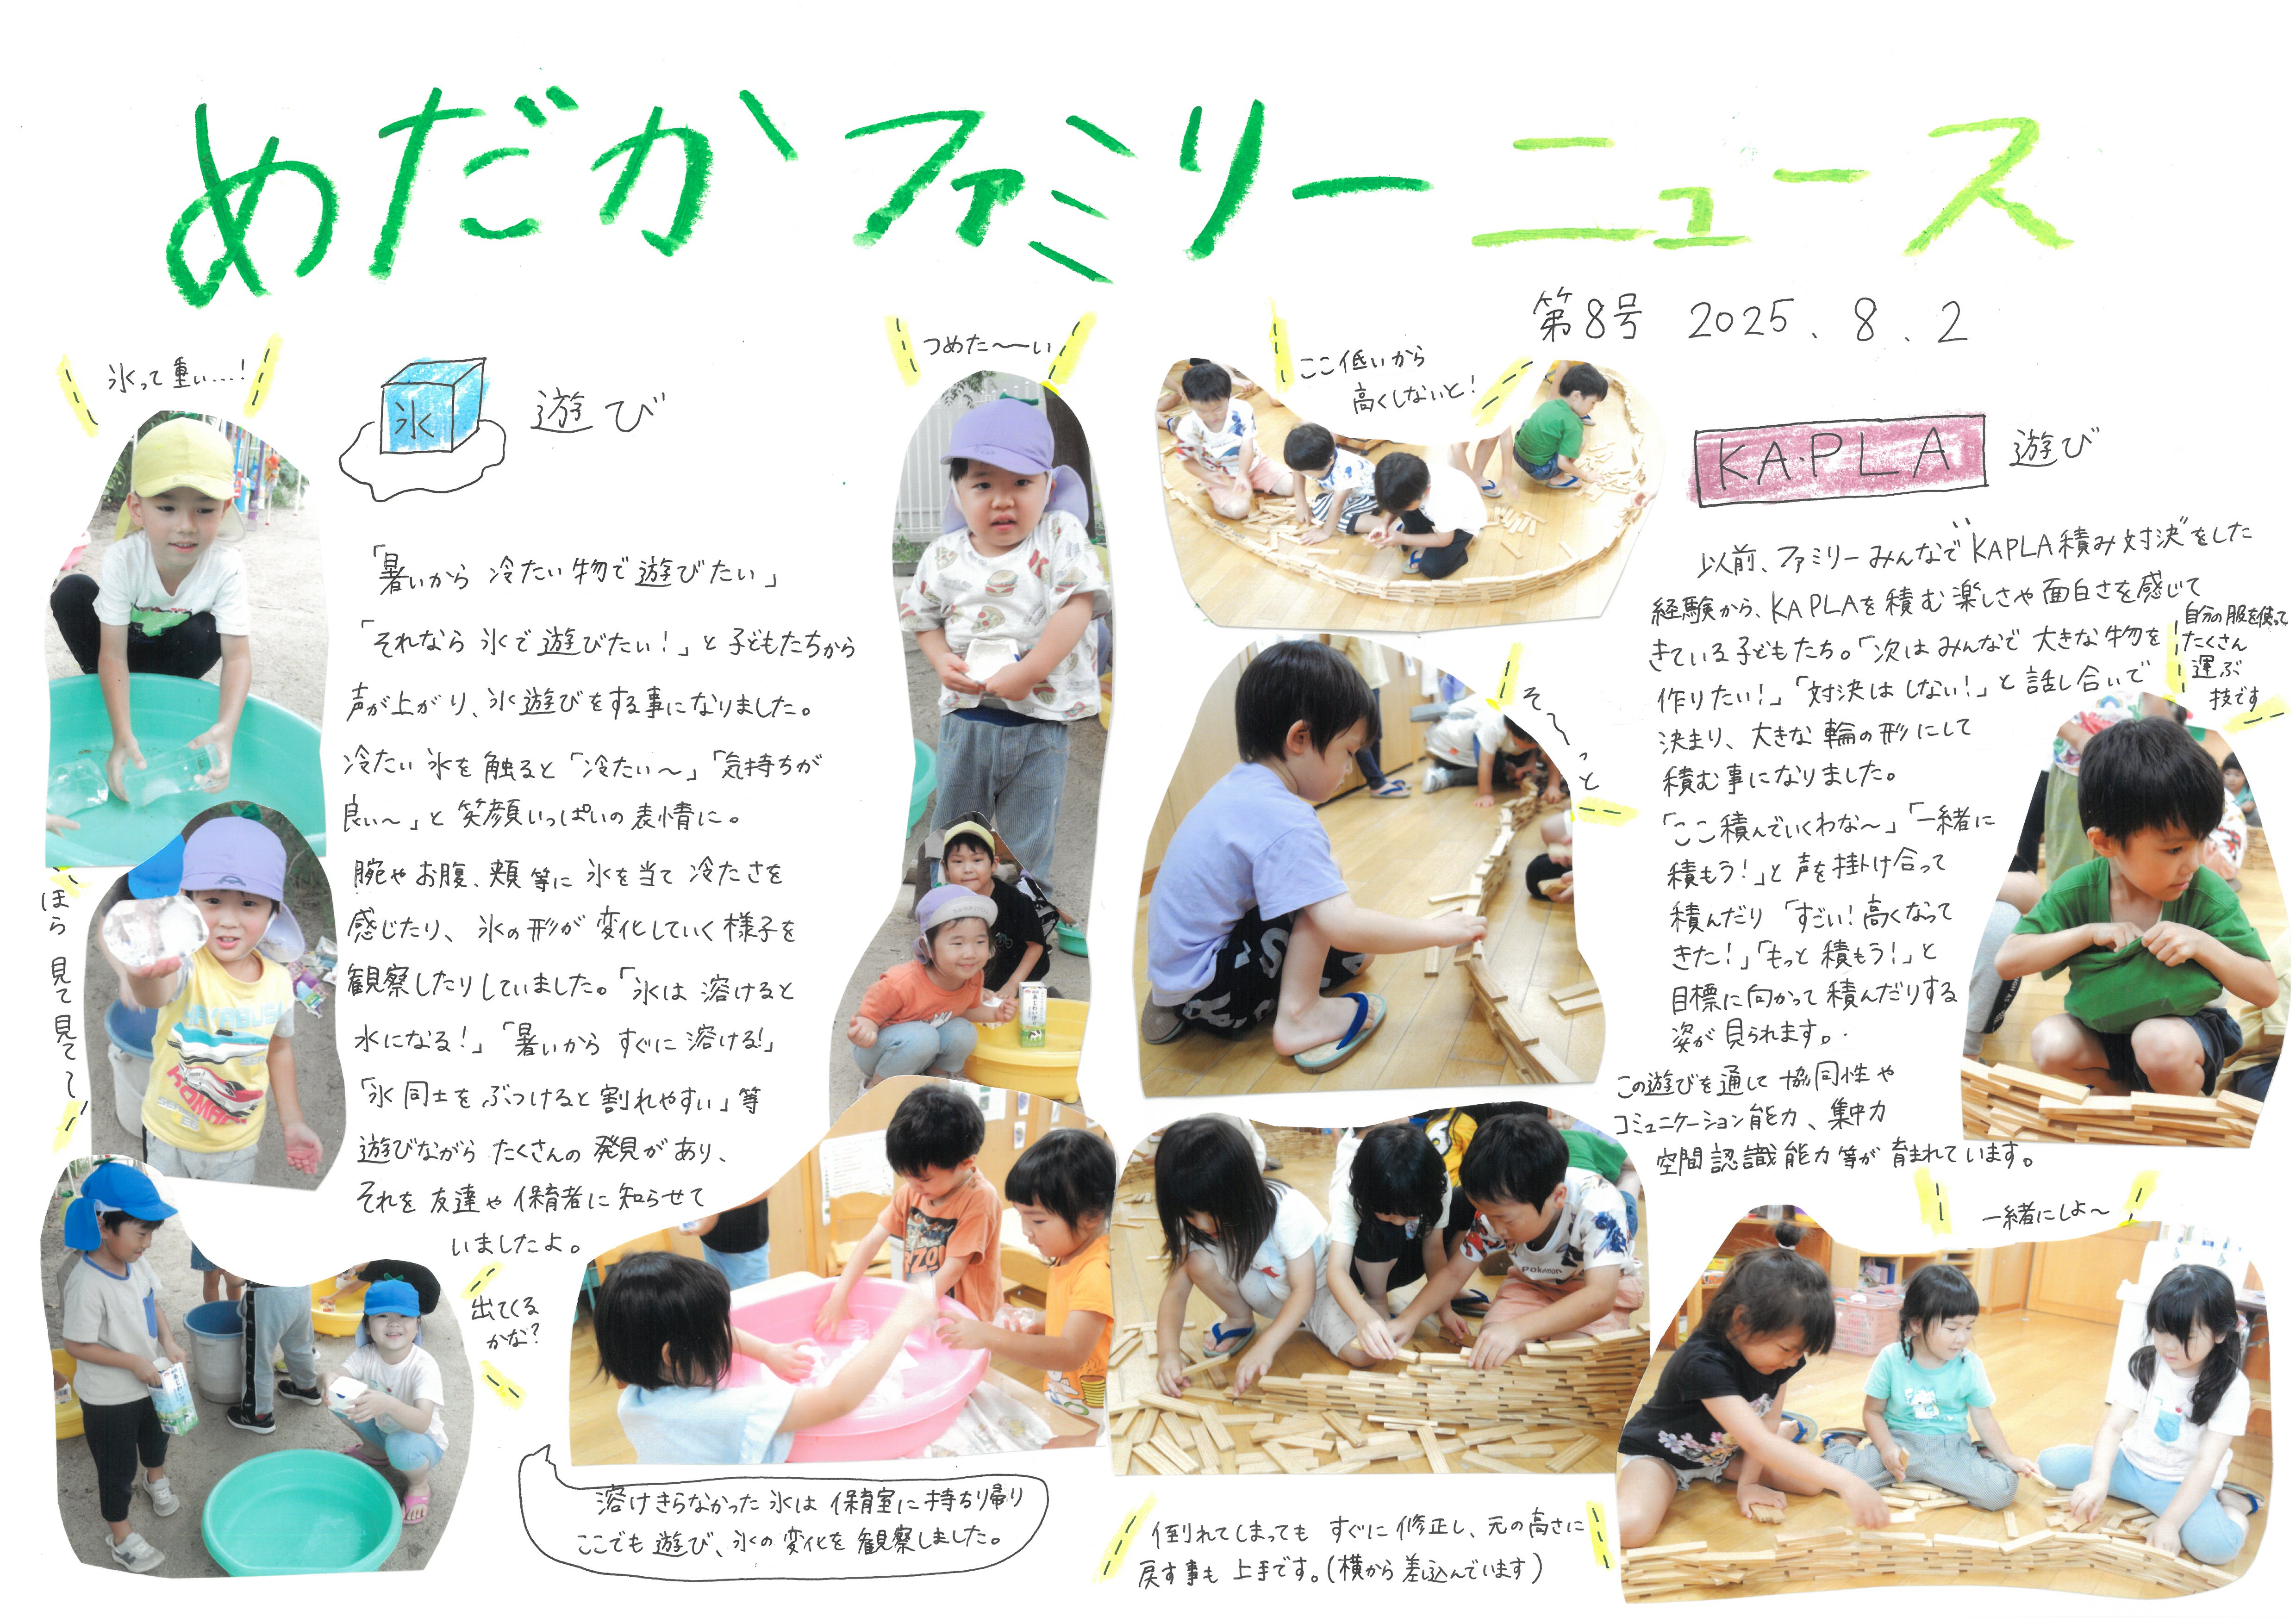 めだかファミリーニュース
第8号 2025.8.2
氷って重い…!
氷 遊び
つめた〜〜い
「暑いから 冷たい物で遊びたい」
「それなら氷で遊びたい!」と子どもたちから
声が上がり、氷遊びをする事になりました。
冷たい氷を触ると「冷たい〜」「気持ちが
良い〜」と笑顔いっぱいの表情に。
腕やお腹、頬等に氷を当て冷たさを
感じたり、氷の形が変化していく様子を
観察したりしていました。「氷は溶けると
水になる!」「暑いからすぐに溶ける!」
「氷同士をぶつけると割れやすい」等
遊びながらたくさんの発見があり、
それを友達や保育者に知らせて
いましたよ。
ほら 見て見て〜!
出てくる
かな?
溶けきらなかった氷は保育室に持ち帰り
ここでも遊び、氷の変化を観察しました。
ここ低いから
高くしないと!
KAPLA 遊び
以前、ファミリーみんなで"KAPLA積み対決"をした
経験から、KAPLAを積む楽しさや面白さを感じて
きている子どもたち。「次はみんなで大きな物を
作りたい!」「対決はしない!」と話し合いで
決まり、大きな輪の形にして
積む事になりました。
「ここ積んでいくわな〜」「一緒に
積もう!」と声を掛け合って
積んだり「すごい!高くなって
きた!」「もっと積もう!」と
目標に向かって積んだりする
姿が見られます。
この遊びを通して協同性や
コミュニケーション能力、集中力
空間認識能力等が育まれています。
自分の服を使って
たくさん
運ぶ
技です
そ〜〜っと
一緒にしよ〜
倒れてしまってもすぐに修正し、元の高さに
戻す事も上手です。(横から差し込んでいます)
Pokémon